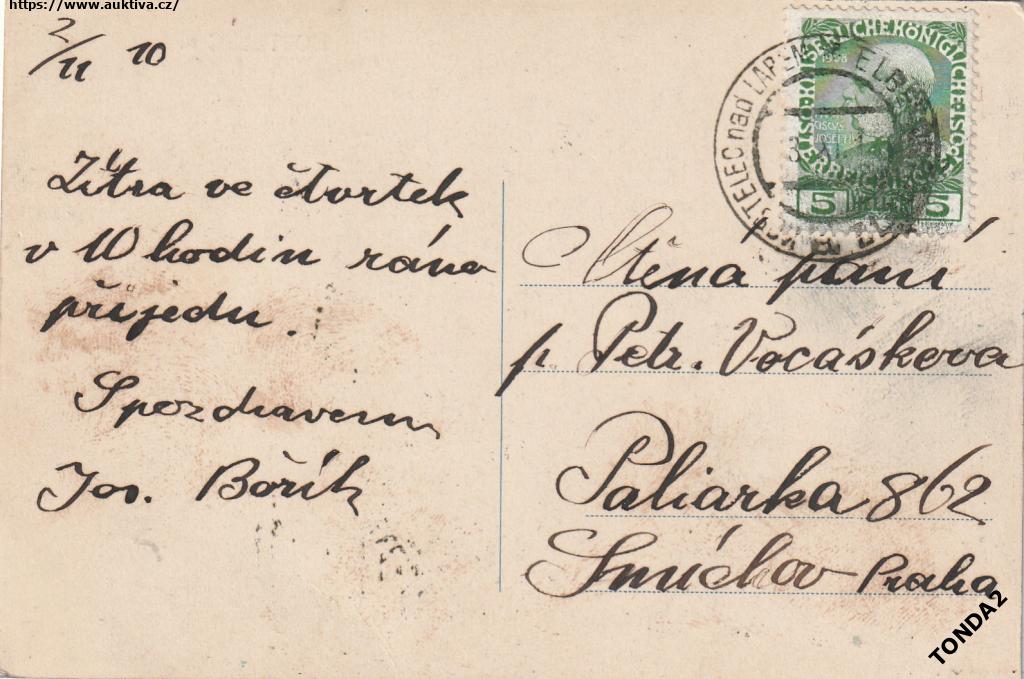 https://www.auktiva.cz/
2/11 10
Zítra ve čtvrtek
v 10 hodin ráno
přijedu.
S pozdravem
Jos. Bořík
Ctěná paní
p. Petr. Vocásková
Paliarka 862
Smíchov Praha
TELEC nad LABEM
ELBE
KAISERLICHE KÖNIGLICHE
1908
5 5
TONDA2